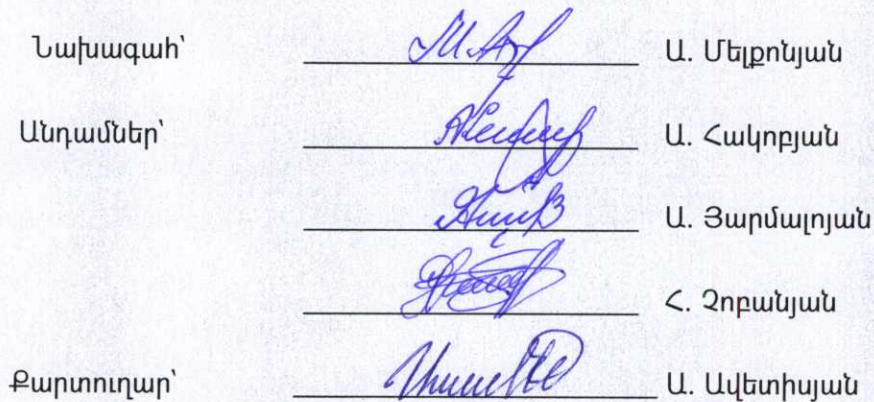 Նախագահ՝ Ա. Մելքոնյան
Անդամներ՝ Ա. Հակոբյան
Ա. Յարմալոյան
Հ. Չոբանյան
Քարտուղար՝ Ա. Ավետիսյան